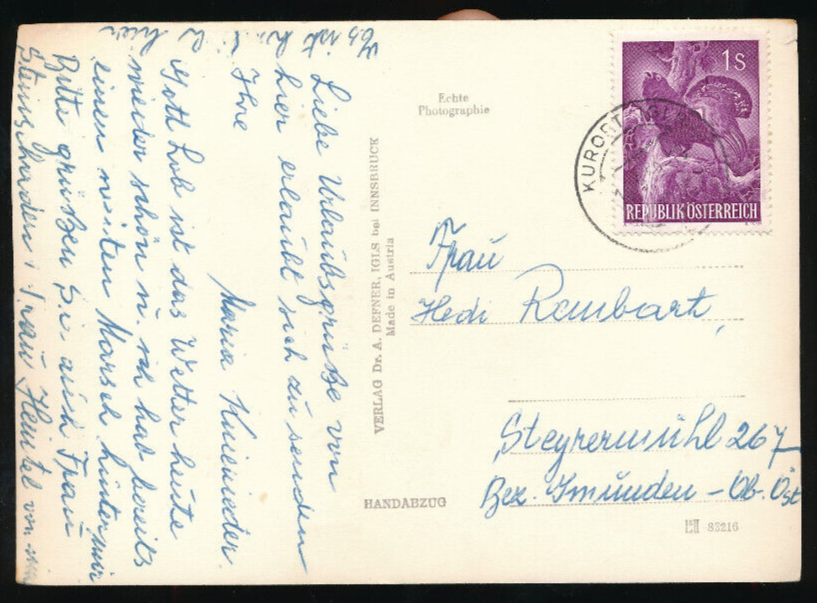 Es ist hier
Liebe Urlaubsgrüße von
hier erlaubt sich zu senden
Ihre
Maria
Gott Lob ist das Wetter heute
wieder schön u. ich hab bereits
einen weiten Marsch hinter mir
Bitte grüßen Sie auch Frau
Frau von
Echte
Photographie
VERLAG Dr. A. DEFNER, IGLS bei INNSBRUCK
Made in Austria
HANDABZUG
1 S
REPUBLIK ÖSTERREICH
KURORT
Frau
Hedi Rembart,
Steyrermühl 267
Bez. Gmunden – Ob. Öst
83216